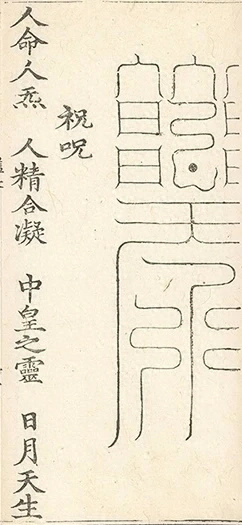 祝呪
人命人炁 人精合凝 中皇之靈 日月天生